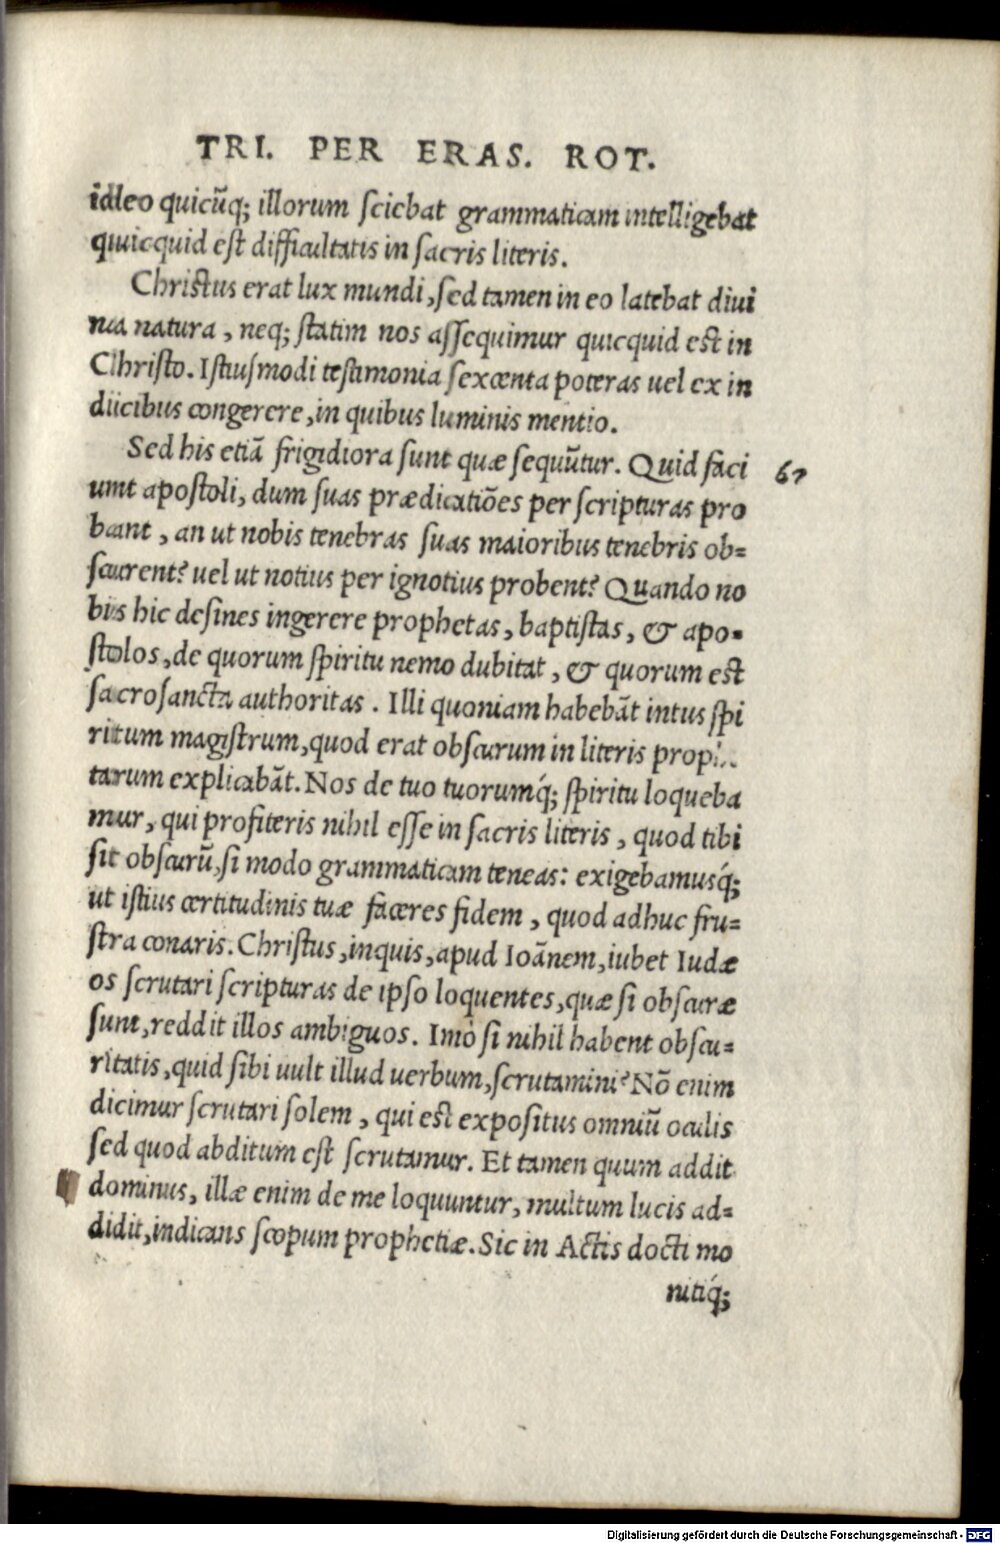 TRI. PER ERAS. ROT.
ideo quicũq; illorum sciebat grammaticam intelligebat
quicquid est difficultatis in sacris literis.
Christus erat lux mundi, sed tamen in eo latebat diui
na natura, neq; statim nos assequimur quicquid est in
Christo. Istiusmodi testimonia sexcenta poteras uel ex in
dicibus congerere, in quibus luminis mentio.
Sed his etiã frigidiora sunt quæ sequũtur. Quid faci
unt apostoli, dum suas prædicatiões per scripturas pro
bant, an ut nobis tenebras suas maioribus tenebris ob=
scurent? uel ut notius per ignotius probent? Quando no
bis hic desines ingerere prophetas, baptistas, & apo=
stolos, de quorum spiritu nemo dubitat, & quorum est
sacrosancta authoritas. Illi quoniam habebãt intus spi
ritum magistrum, quod erat obscurum in literis
tarum explicabãt. Nos de tuo tuorumq́; spiritu loqueba
mur, qui profiteris nihil esse in sacris literis, quod tibi
sit obscurũ, si modo grammaticam teneas: exigebamusq́;
ut istius certitudinis tuæ faceres fidem, quod adhuc fru=
stra conaris. Christus, inquis, apud Ioãnem, iubet Iudæ
os scrutari scripturas de ipso loquentes, quæ si obscuræ
sunt, reddit illos ambiguos. Imò si nihil habent obscu=
ritatis, quid sibi uult illud uerbum, scrutamini? Nõ enim
dicimur scrutari solem, qui est expositus omniũ oculis
sed quod abditum est scrutamur. Et tamen quum addit
dominus, illæ enim de me loquuntur, multum lucis ad=
didit, indicans scopum prophetiæ. Sic in Actis docti mo
nitiq́;
67
Digitalisierung gefördert durch die Deutsche Forschungsgemeinschaft - DFG